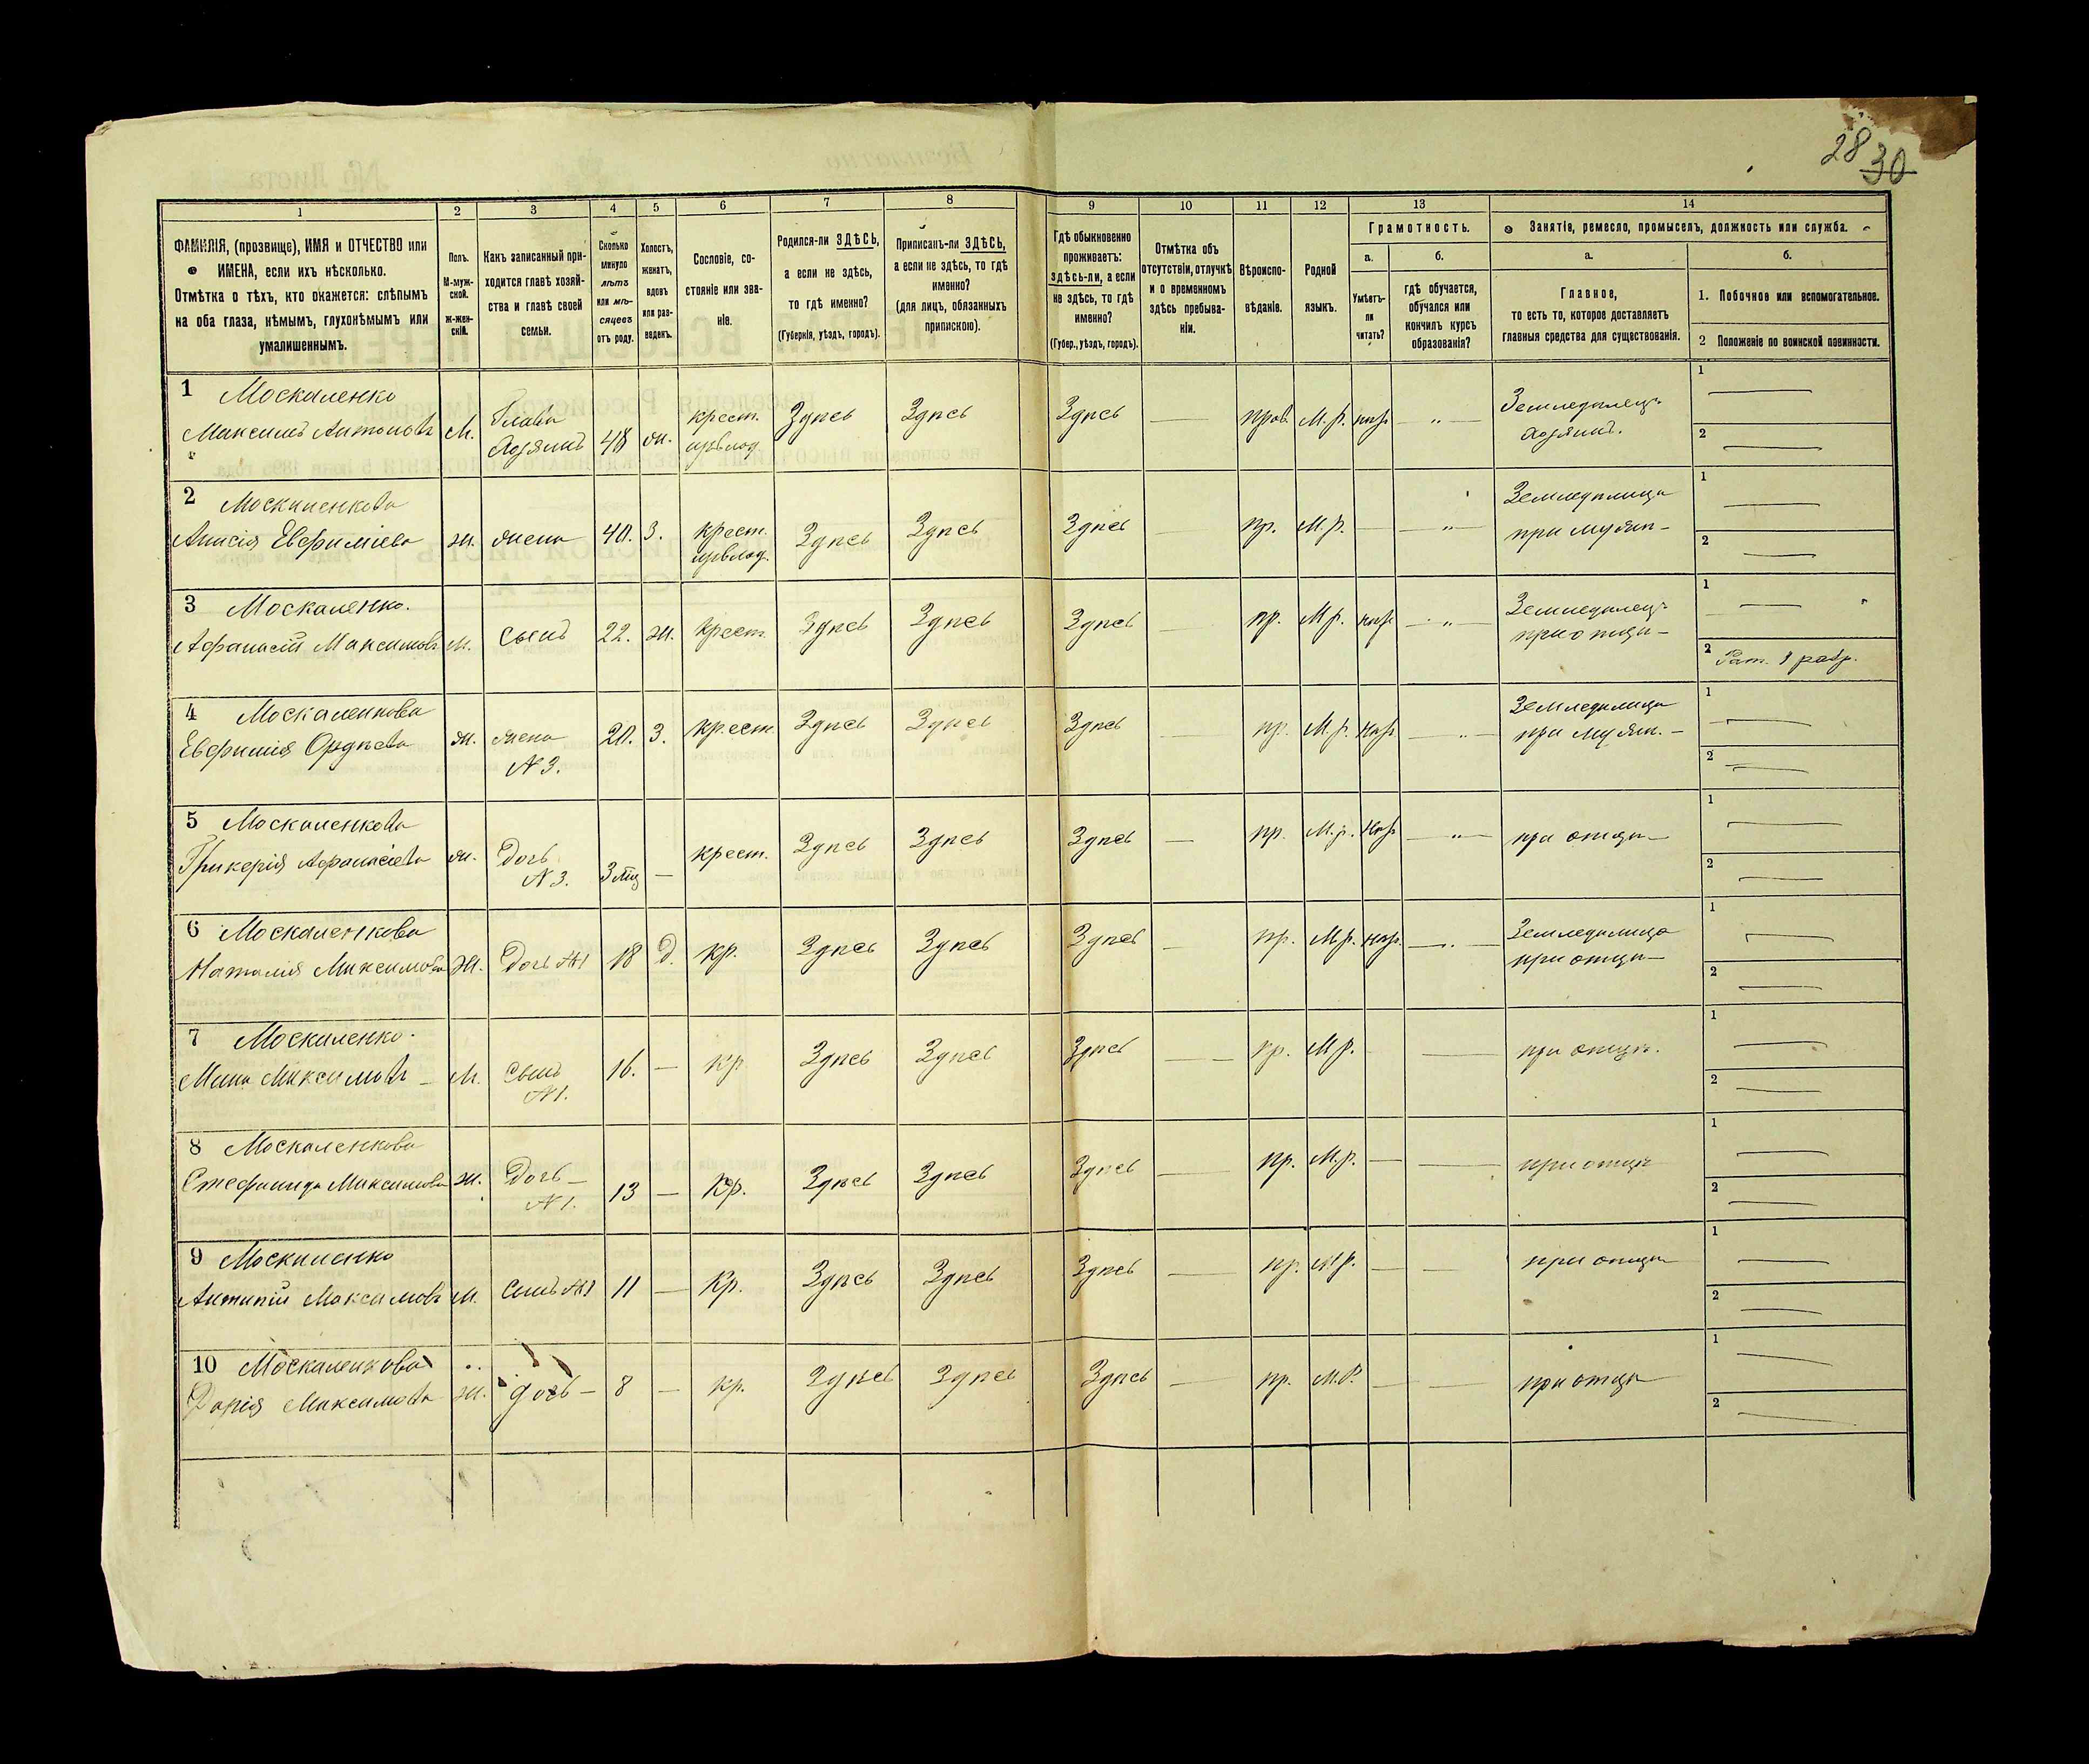 28 30
1 2 3 4 5 6 7 8 9 10 11 12 13 14
ФАМИЛІЯ, (прозвище), ИМЯ и ОТЧЕСТВО или
ИМЕНА, если ихъ нѣсколько.
Отмѣтка о тѣхъ, кто окажется: слѣпымъ
на оба глаза, нѣмымъ, глухонѣмымъ или
умалишеннымъ.
Полъ.
М-муж-
ской.
ж-жен-
скій.
Какъ записанный при-
ходится главѣ хозяй-
ства и главѣ своей
семьи.
Сколько
минуло
лѣтъ
или мѣ-
сяцевъ
отъ роду.
Холостъ,
женатъ,
вдовъ
или раз-
веденъ.
Сословіе, со-
стояніе или зва-
ніе.
Родился-ли ЗДѢСЬ,
а если не здѣсь,
то гдѣ именно?
(Губернія, уѣздъ, городъ).
Приписанъ-ли ЗДѢСЬ,
а если не здѣсь, то гдѣ
именно?
(для лицъ, обязанныхъ
припискою).
Гдѣ обыкновенно
проживаетъ:
здѣсь-ли, а если
не здѣсь, то гдѣ
именно?
(Губер., уѣздъ, городъ).
Отмѣтка объ
отсутствіи, отлучкѣ
и о временномъ
здѣсь пребыва-
ніи.
Вѣроиспо-
вѣданіе.
Родной
языкъ.
Грамотность.
а.
Умѣетъ-
ли
читать?
б.
гдѣ обучается,
обучался или
кончилъ курсъ
образованія?
Занятіе, ремесло, промыселъ, должность или служба.
а.
Главное,
то есть то, которое доставляетъ
главныя средства для существованія.
б.
1. Побочное или вспомогательное.
2 Положеніе по воинской повинности.
1 Москаленко
Максимъ Антоновъ М. Глава Хозяинъ 48 ж. крест. Здѣсь Здѣсь Здѣсь — прав. М. р. — „ — Земледѣлецъ хозяинъ. 1 — 2 —
2 Москаленкова
Анисія Евфиміева ж. жена 40. З. крест. Здѣсь Здѣсь Здѣсь — пр. М. р. — — „ — Земледѣлица при мужѣ — 1 — 2 —
3 Москаленко.
Афанасій Максимовъ М. сынъ 22. ж. крест. Здѣсь Здѣсь Здѣсь — пр. М р. — „ — Земледѣлецъ при отцѣ — 1 — 2 Рат. 1 разр.
4 Москаленкова
Евфимія ж. жена N 3. 20. З. крест. Здѣсь Здѣсь Здѣсь — пр. М. р. — „ — Земледѣлица при мужѣ. — 1 — 2 —
5 Москаленкова
Афанасіева ж. Дочь N 3. 3 мѣц — крест. Здѣсь Здѣсь Здѣсь — пр. М. р. — „ — при отцѣ — 1 — 2 —
6 Москаленкова
Наталія Максимова Ж. Дочь N1 18 Д. кр. Здѣсь Здѣсь Здѣсь — пр. М р. — „ — Земледѣлица при отцѣ — 1 — 2 —
7 Москаленко.
Мина Максимовъ — М. Сынъ N 1. 16. — кр Здѣсь Здѣсь Здѣсь — пр. М р. — при отцѣ. 1 — 2 —
8 Москаленкова
Стефанида Максимова ж. Дочь — N 1. 13 — Кр. Здѣсь Здѣсь Здѣсь — пр. М. р. — — при отцѣ 1 — 2 —
9 Москаленко
Антипій Максимовъ М. Сынъ N1 11 — Кр. Здѣсь Здѣсь Здѣсь — пр. М. р. — — при отцѣ 1 — 2 —
10 Москаленкова
Дарія Максимова ж. дочь — 8 — кр. Здѣсь Здѣсь Здѣсь — пр. М. Р. — — при отцѣ 1 — 2 —